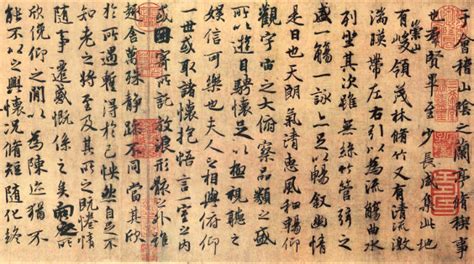 于會稽山陰之蘭亭脩稧事
也羣賢畢至少長咸集此地
有崇山峻領茂林脩竹又有清流激
湍暎帶左右引以為流觴曲水
列坐其次雖無絲竹管弦之
盛一觴一詠亦足以暢敘幽情
是日也天朗氣清惠風和暢仰
觀宇宙之大俯察品類之盛
所以遊目騁懷足以極視聽之
娛信可樂也夫人之相與俯仰
一世或取諸懷抱悟言一室之內
或因寄所託放浪形骸之外雖
趣舍萬殊靜躁不同當其欣
於所遇暫得於己怏然自足不
知老之將至及其所之既惓情
隨事遷感慨係之矣向之所
欣俛仰之閒以為陳迹猶不
能不以之興懷況脩短隨化終